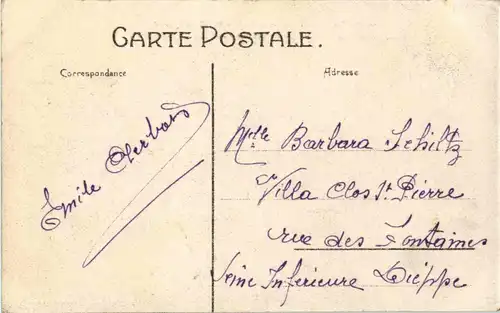 CARTE POSTALE.
Correspondance
Adresse
Emile
Mlle Barbara Schiltz
Villa Clos St. Pierre
rue des Fontaines
Seine Inférieure Dieppe